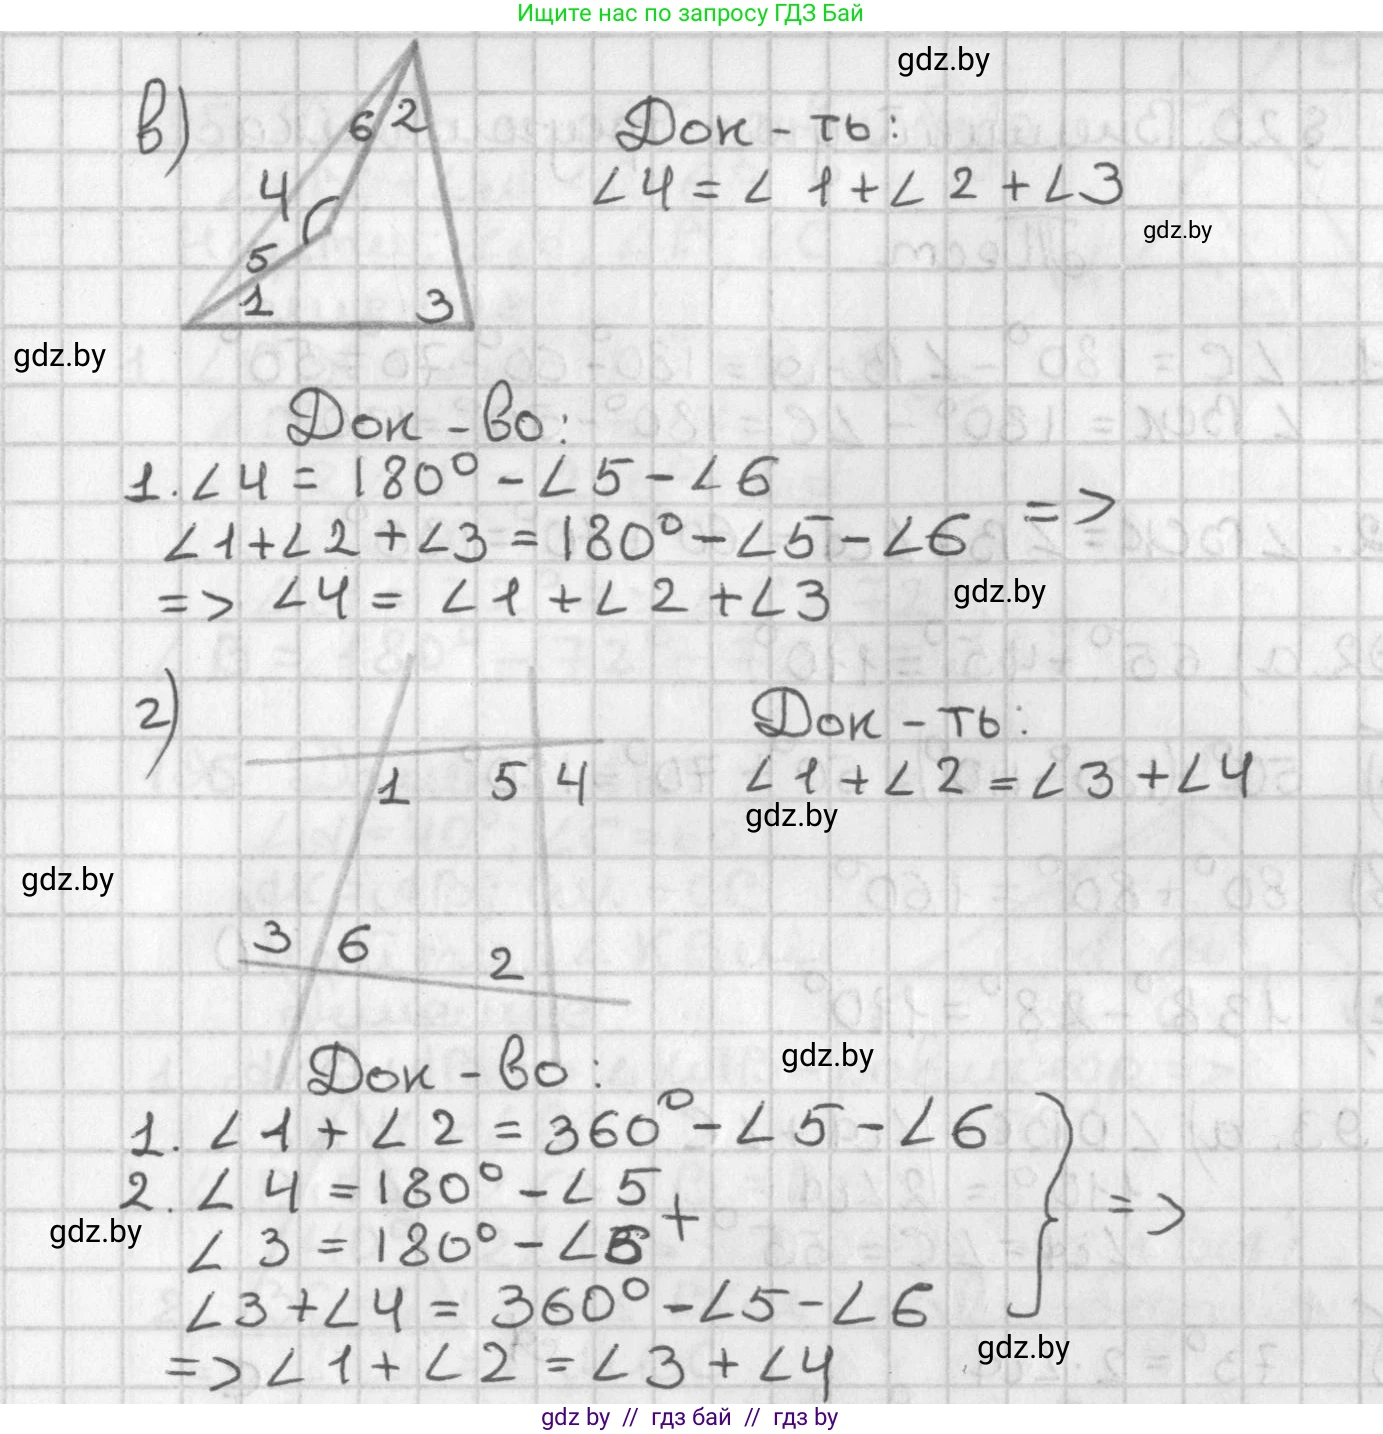 Ищите нас по запросу ГДЗ Бай
gdz.by
в)
6 2
4
5
1 3
Док-ть:
∠4 = ∠1 + ∠2 + ∠3
gdz.by
gdz.by
Док-во:
1. ∠4 = 180° - ∠5 - ∠6
∠1 + ∠2 + ∠3 = 180° - ∠5 - ∠6 =>
=> ∠4 = ∠1 + ∠2 + ∠3
gdz.by
г)
1 5 4
3 6 2
Док-ть:
∠1 + ∠2 = ∠3 + ∠4
gdz.by
gdz.by
Док-во:
gdz.by
1. ∠1 + ∠2 = 360° - ∠5 - ∠6
2. ∠4 = 180° - ∠5
+ } =>
gdz.by
∠3 = 180° - ∠6
∠3 + ∠4 = 360° - ∠5 - ∠6
=> ∠1 + ∠2 = ∠3 + ∠4
gdz.by
gdz by // гдз бай // гдз by